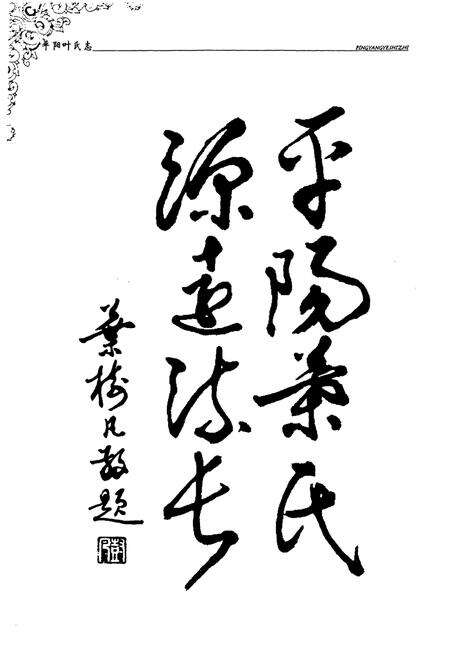 平阳叶氏志
PINGYANGYESHIZHI
平陽葉氏
源遠流长
葉樹凡敬題